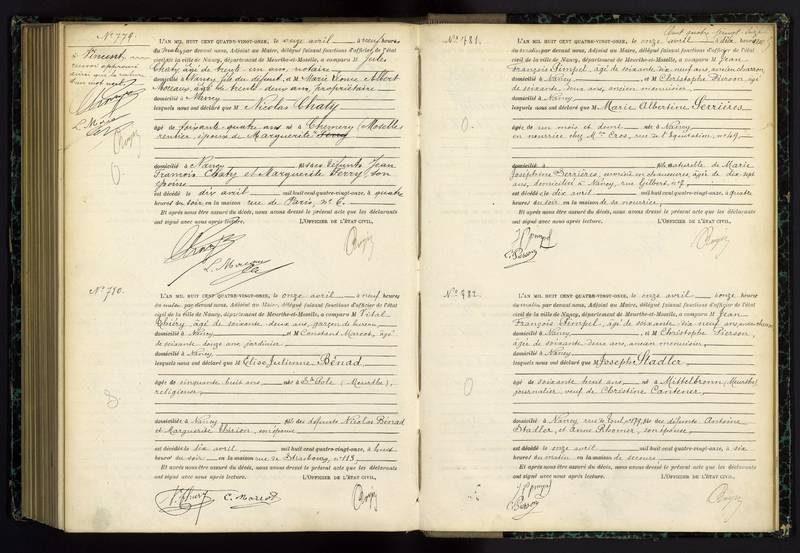 N° 779.
L'AN MIL HUIT CENT QUATRE-VINGT-ONZE, le onze avril à neuf heures
du matin, par devant nous, Adjoint au Maire, délégué faisant fonctions d'officier de l'état
civil de la ville de Nancy, département de Meurthe-et-Moselle, a comparu M Jules
Chaty âgé de trente un ans, notaire
domicilié à Nancy, fils du défunt, et M Marie Louis Albert
Moreaux, âgé de trente deux ans, propriétaire
domicilié à Nancy
lesquels nous ont déclaré que M Nicolas Chaty
âgé de soixante quatre ans né à Chémery (Moselle)
rentier, époux de Marguerite
domicilié à Nancy fils des défunts Jean
François Chaty et Marguerite Ferry, son
épouse
est décédé le dix avril mil huit cent quatre-vingt-onze, à quatre
heures du soir, en la maison rue de Paris, n° 6.
Et après nous être assuré du décès, nous avons dressé le présent acte que les déclarants
ont signé avec nous après lecture. L'OFFICIER DE L'ÉTAT CIVIL,
L. Moreaux
N° 780.
L'AN MIL HUIT CENT QUATRE-VINGT-ONZE, le onze avril à neuf heures
du matin, par devant nous, Adjoint au Maire, délégué faisant fonctions d'officier de l'état
civil de la ville de Nancy, département de Meurthe-et-Moselle, a comparu M Vital
Thiéry, âgé de soixante deux ans, garçon de bureau
domicilié à Nancy et M Constant Marcot, âgé
de soixante douze ans jardinier
domicilié à Nancy
lesquels nous ont déclaré que M Elise Julienne Bénad
âgée de cinquante huit ans née à (Meurthe),
religieuse
domiciliée à Nancy fille des défunts Nicolas Bénad
et Marguerite son épouse
est décédée le dix avril mil huit cent quatre-vingt-onze, à
heures du soir en la maison rue de Strasbourg, n° 113
Et après nous être assuré du décès, nous avons dressé le présent acte que les déclarants
ont signé avec nous après lecture. L'OFFICIER DE L'ÉTAT CIVIL,
C. Marcot
N° 781.
L'AN MIL HUIT CENT QUATRE-VINGT-ONZE, le onze avril à dix heures
du matin, par devant nous, Adjoint au Maire, délégué faisant fonctions d'officier de l'état
civil de la ville de Nancy, département de Meurthe-et-Moselle, a comparu M Jean
François Pimpel, âgé de soixante dix neuf ans, ancien charron
domicilié à Nancy et M Christophe Pierson, âgé
de soixante deux ans, ancien menuisier
domicilié à Nancy
lesquels nous ont déclaré que M Marie Albertine Serrières
âgée de un mois et demi née à Nancy
en nourrice chez Mme Cros, rue de l'Equitation, n° 49
domicilié à fille naturelle de Marie
Joséphine Serrières, ouvrière en chaussures, âgée de dix sept
ans, domiciliée à Nancy, rue Gilbert, n° 7
est décédée le dix avril mil huit cent quatre-vingt-onze, à quatre
heures du soir, en la maison de sa nourrice,
Et après nous être assuré du décès, nous avons dressé le présent acte que les déclarants
ont signé avec nous après lecture. L'OFFICIER DE L'ÉTAT CIVIL,
N° 782.
L'AN MIL HUIT CENT QUATRE-VINGT-ONZE, le onze avril à onze heures
du matin, par devant nous, Adjoint au Maire, délégué faisant fonctions d'officier de l'état
civil de la ville de Nancy, département de Meurthe-et-Moselle, a comparu M Jean
François Pimpel, âgé de soixante dix neuf ans, ancien charron
domicilié à Nancy et M Christophe Pierson,
âgé de soixante deux ans, ancien menuisier
domicilié à Nancy
lesquels nous ont déclaré que M Joseph Stadler
âgé de soixante huit ans né à Mittelbronn (Meurthe)
journalier, veuf de Christine Cantener
domicilié à Nancy, rue de Toul, n° 179, fils des défunts Antoine
Stadler et Anne Rhomer, son épouse
est décédé le onze avril mil huit cent quatre-vingt-onze, à six
heures du matin en la maison de secours
Et après nous être assuré du décès, nous avons dressé le présent acte que les déclarants
ont signé avec nous après lecture. L'OFFICIER DE L'ÉTAT CIVIL,